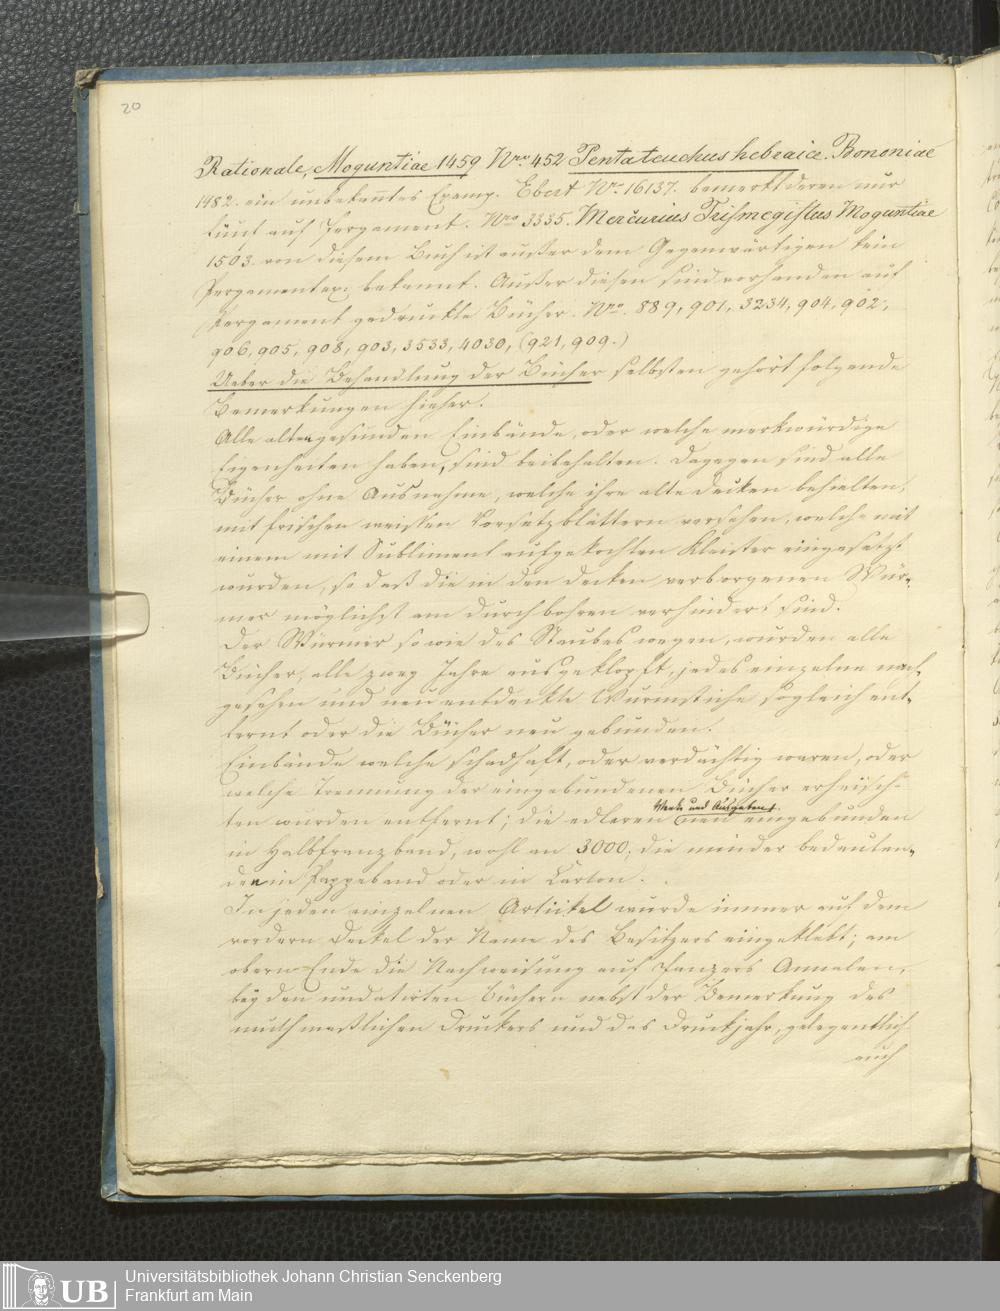 20
Rationale, Moguntiae 1459 Nro 452 Pentateuchus hebraice. Bononiae
1482. ein unbekanntes Exemp. Ebert Nr. 16137. bemerkt deren nur
fünf auf Pergament. Nro 3335. Mercurius Trismegistus Moguntiae
1503. von diesem Buch ist außer dem Gegenwärtigen kein
Pergamentex: bekannt. Außer diesen sind vorhanden auf
Pergament gedruckte Bücher. Nro. 889, 901, 3234, 904, 902,
906, 905, 908, 903, 3533, 4030, (921, 909.)
Ueber die Behandlung der Bücher selbsten gehört folgende
Bemerkungen hieher.
Alle alten gesunden Einbände, oder welche merkwürdige
Eigenheiten haben, sind beibehalten. Dagegen sind alle
Bücher ohne Ausnahme, welche ihre alte Decken behielten,
mit frischen weissen Vorsetzblättern versehen, welche mit
einem mit Subliment aufgekochten Kleister eingesetzt
wurden, so daß die in den Decken verborgenen Wür-
mer möglichst am durchbohren verhindert sind.
Der Würmer so wie des Staubes wegen, wurden alle
Bücher, alle zwey Jahre ausgeklopft, jedes einzelne nach-
gesehen und neu entdeckte Wurmstiche sogleich ent-
fernt oder die Bücher neu gebunden.
Einbände welche schadhaft, oder verdächtig waren, oder
welche Trennung der eingebundenen Bücher erheisch-
Werke und Ausgaben
ten wurden entfernt; die edleren neu eingebunden
in Halbfranzband, wohl an 3000; die minder bedeuten-
den in Pappeband oder in Carton.
In jeden einzelnen Artickel wurde immer auf dem
vordern Deckel der Name des Besitzers eingeklebt; am
obern Ende die Nachweisung auf Panzers Annalen,
bey den undatirten Büchern nebst der Bemerkung des
muthmaßlichen Druckers und das Druckjahr, gelegentlich
auch
UB
Universitätsbibliothek Johann Christian Senckenberg
Frankfurt am Main